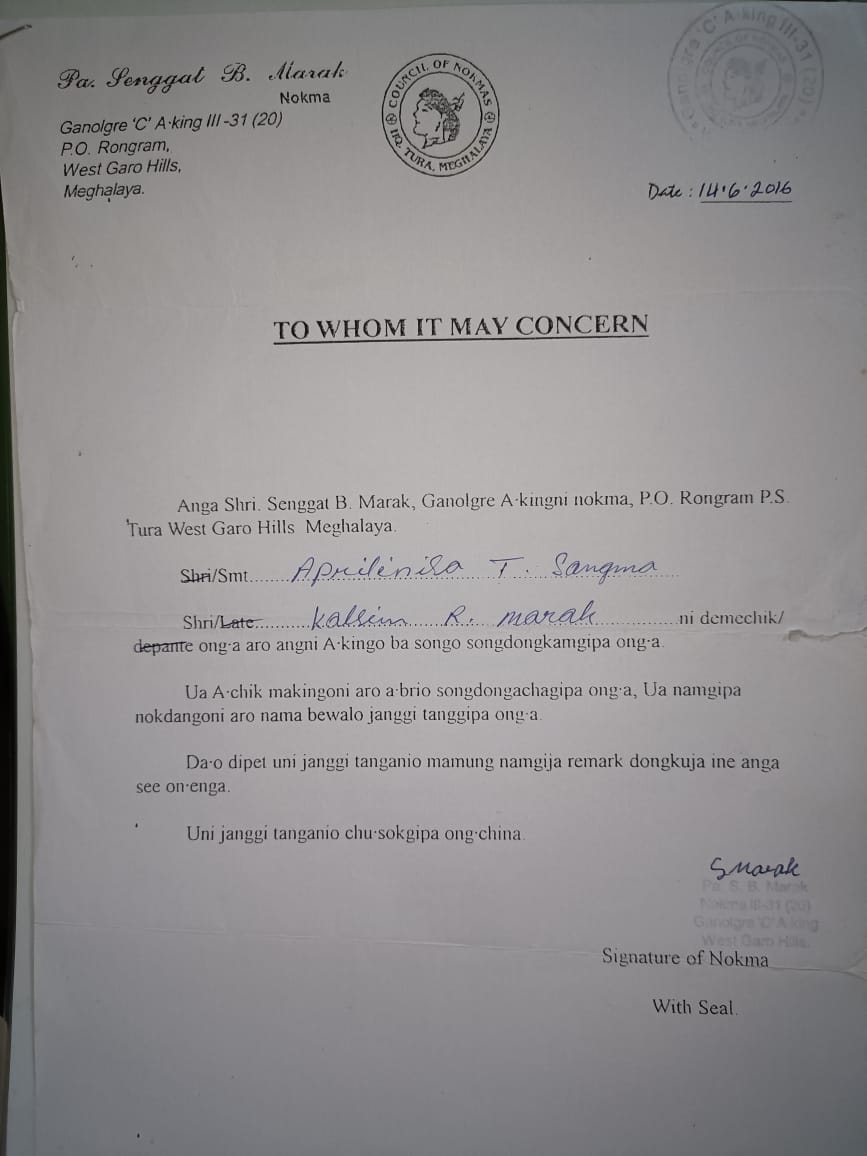 Pa. Senggat B. Marak
Nokma
Ganolgre 'C' A·king III-31 (20)
P.O. Rongram,
West Garo Hills,
Meghalaya.
COUNCIL OF NOKMAS
HQ. TURA, MEGHALAYA
'C' A·king III-31 (20)
Date : 14·6·2016
TO WHOM IT MAY CONCERN
Anga Shri. Senggat B. Marak, Ganolgre A·kingni nokma, P.O. Rongram P.S.
Tura West Garo Hills Meghalaya.
Shri/Smt....... Aprilinisa T. Sangma
Shri/Late........... Kalsim R. Marak ................ni demechik/
depante ong·a aro angni A·kingo ba songo songdongkamgipa ong·a.
Ua A·chik makingoni aro a·brio songdongachagipa ong·a, Ua namgipa
nokdangoni aro nama bewalo janggi tanggipa ong·a.
Da·o dipet uni janggi tanganio mamung namgija remark dongkuja ine anga
see on·enga.
Uni janggi tanganio chu·sokgipa ong·china.
SMarak
Pa. S. B. Marak
Nokma III-31 (20)
Ganolgre 'C' A·king
West Garo Hills.
Signature of Nokma
With Seal.